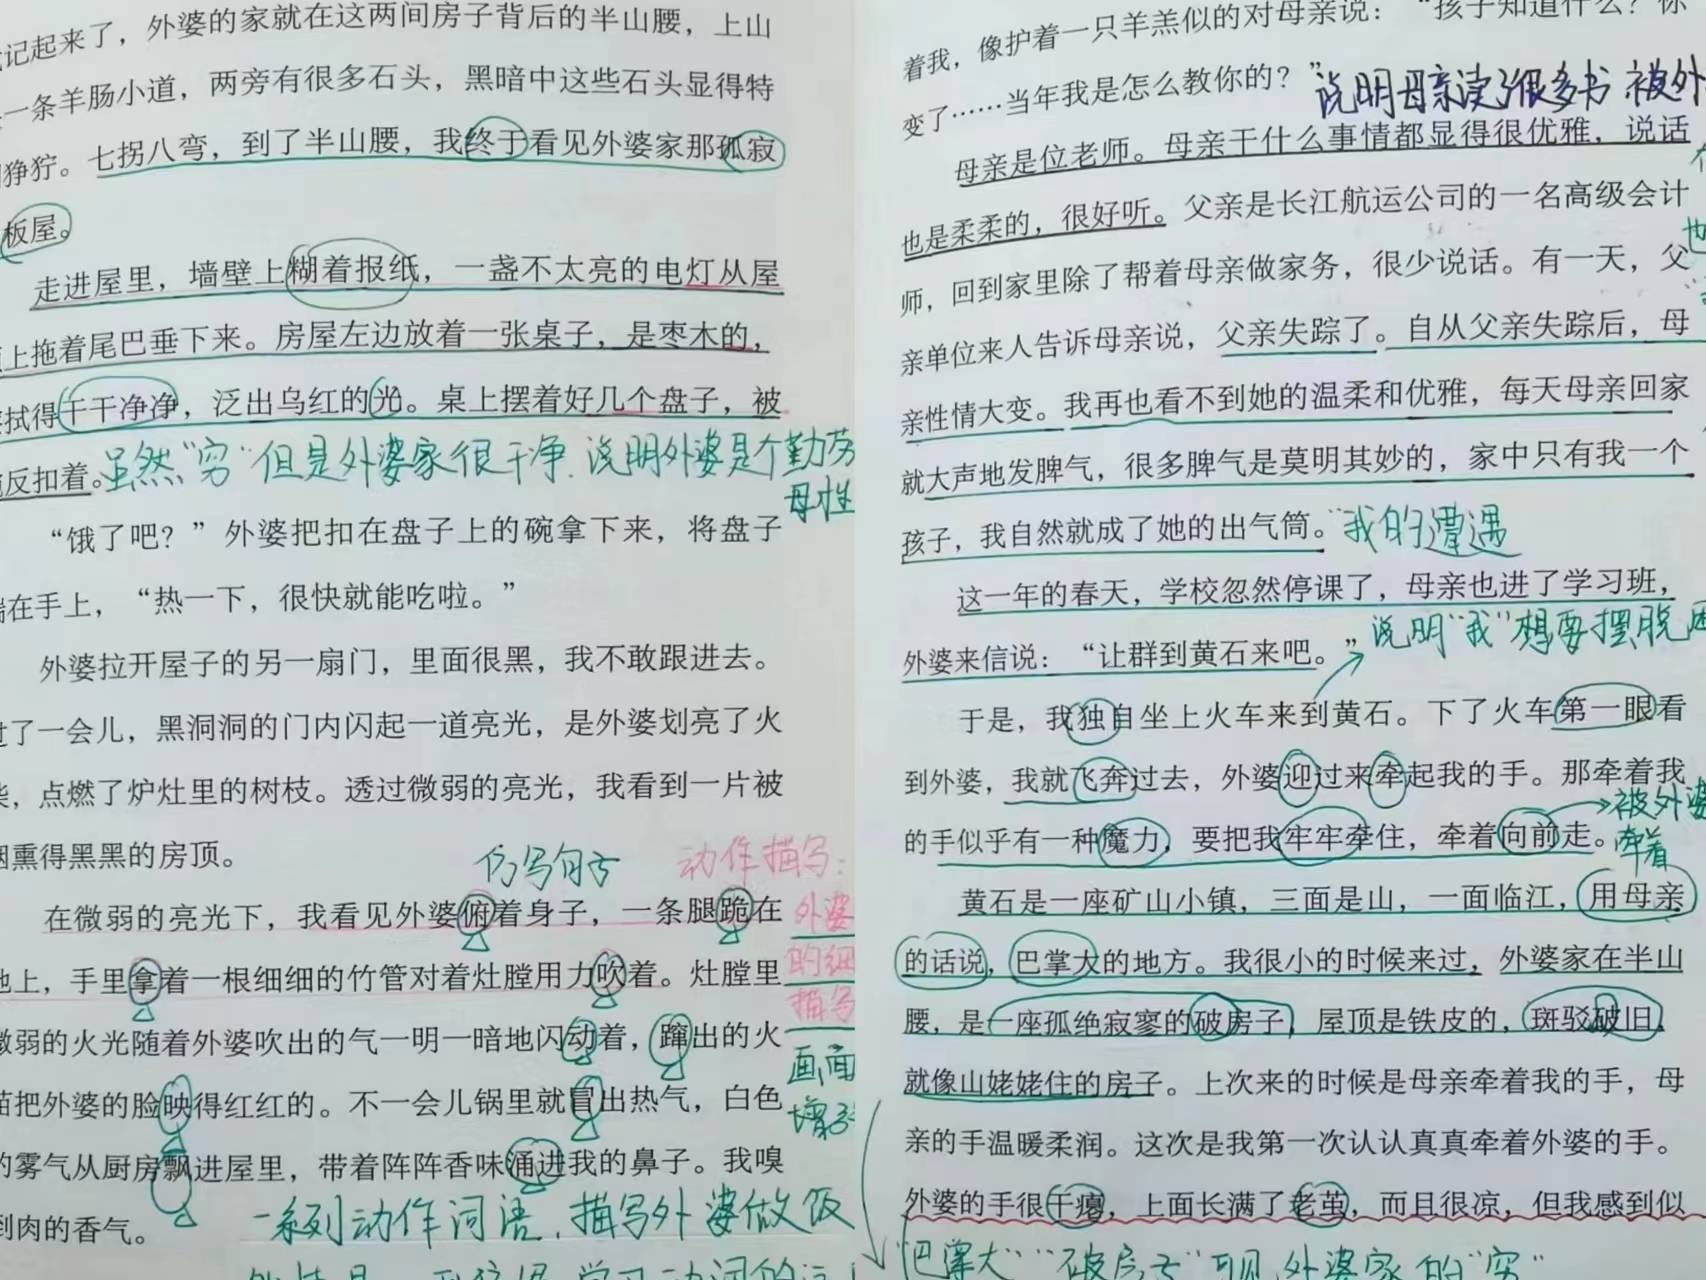 记起来了，外婆的家就在这两间房子背后的半山腰，上山
一条羊肠小道，两旁有很多石头，黑暗中这些石头显得特
狰狞。七拐八弯，到了半山腰，我终于看见外婆家那孤寂
板屋。
走进屋里，墙壁上糊着报纸，一盏不太亮的电灯从屋
上拖着尾巴垂下来。房屋左边放着一张桌子，是枣木的，
拭得干干净净，泛出乌红的光。桌上摆着好几个盘子，被
反扣着。虽然“穷”但是外婆家很干净，说明外婆是个勤劳
母性
“饿了吧？”外婆把扣在盘子上的碗拿下来，将盘子
在手上，“热一下，很快就能吃啦。”
外婆拉开屋子的另一扇门，里面很黑，我不敢跟进去。
过了一会儿，黑洞洞的门内闪起一道亮光，是外婆划亮了火
柴，点燃了炉灶里的树枝。透过微弱的亮光，我看到一片被
烟熏得黑黑的房顶。
仿写句子 动作描写：
在微弱的亮光下，我看见外婆俯着身子，一条腿跪在
外婆
地上，手里拿着一根细细的竹管对着灶膛用力吹着。灶膛里
的细
描写
微弱的火光随着外婆吹出的气一明一暗地闪动着，蹿出的火
画面
苗把外婆的脸映得红红的。不一会儿锅里就冒出热气，白色
增强
的雾气从厨房飘进屋里，带着阵阵香味涌进我的鼻子。我嗅
到肉的香气。
一系列动作词语，描写外婆做饭
着我，像护着一只羊羔似的对母亲说：“孩子知道什么？你
变了……当年我是怎么教你的？”
说明母亲读了很多书 被外
母亲是位老师。母亲干什么事情都显得很优雅，说话
也是柔柔的，很好听。父亲是长江航运公司的一名高级会计
师，回到家里除了帮着母亲做家务，很少说话。有一天，父
亲单位来人告诉母亲说，父亲失踪了。自从父亲失踪后，母
亲性情大变。我再也看不到她的温柔和优雅，每天母亲回家
就大声地发脾气，很多脾气是莫明其妙的，家中只有我一个
孩子，我自然就成了她的出气筒。“我的遭遇
这一年的春天，学校忽然停课了，母亲也进了学习班，
外婆来信说：“让群到黄石来吧。”
说明“我”想要摆脱
于是，我独自坐上火车来到黄石。下了火车第一眼看
到外婆，我就飞奔过去，外婆迎过来牵起我的手。那牵着我
被外婆
牵着
的手似乎有一种魔力，要把我牢牢牵住，牵着向前走。
黄石是一座矿山小镇，三面是山，一面临江，用母亲
的话说，巴掌大的地方。我很小的时候来过，外婆家在半山
腰，是一座孤绝寂寥的破房子，屋顶是铁皮的，斑驳破旧，
就像山姥姥住的房子。上次来的时候是母亲牵着我的手，母
亲的手温暖柔润。这次是我第一次认认真真牵着外婆的手。
外婆的手很干瘪，上面长满了老茧，而且很凉，但我感到似
“巴掌大”“破房子”可见外婆家的“穷”